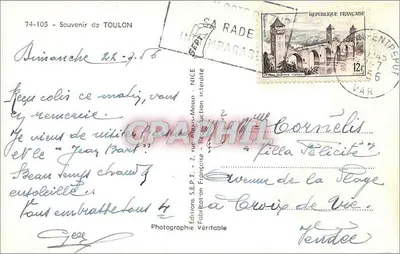 74-105 - Souvenir de TOULON
Dimanche 22-7-56
Reçu colis ce matin, vous
en remercie.
Je viens de visiter
et le "Jean Bart".
Beau temps chaud,
ensoleillé.
Vous embrasse tous 4
Editions S.E.P.T. - 2, rue - NICE
Fabrication Française - Reproduction interdite
Photographie véritable
SA RADE
REPUBLIQUE FRANÇAISE
12F
ENTREPOT
56
VAR
Mme Cornélis
Villa Félicité
Avenue de la Plage
à Croix de Vie
Vendée
GRAPHIL